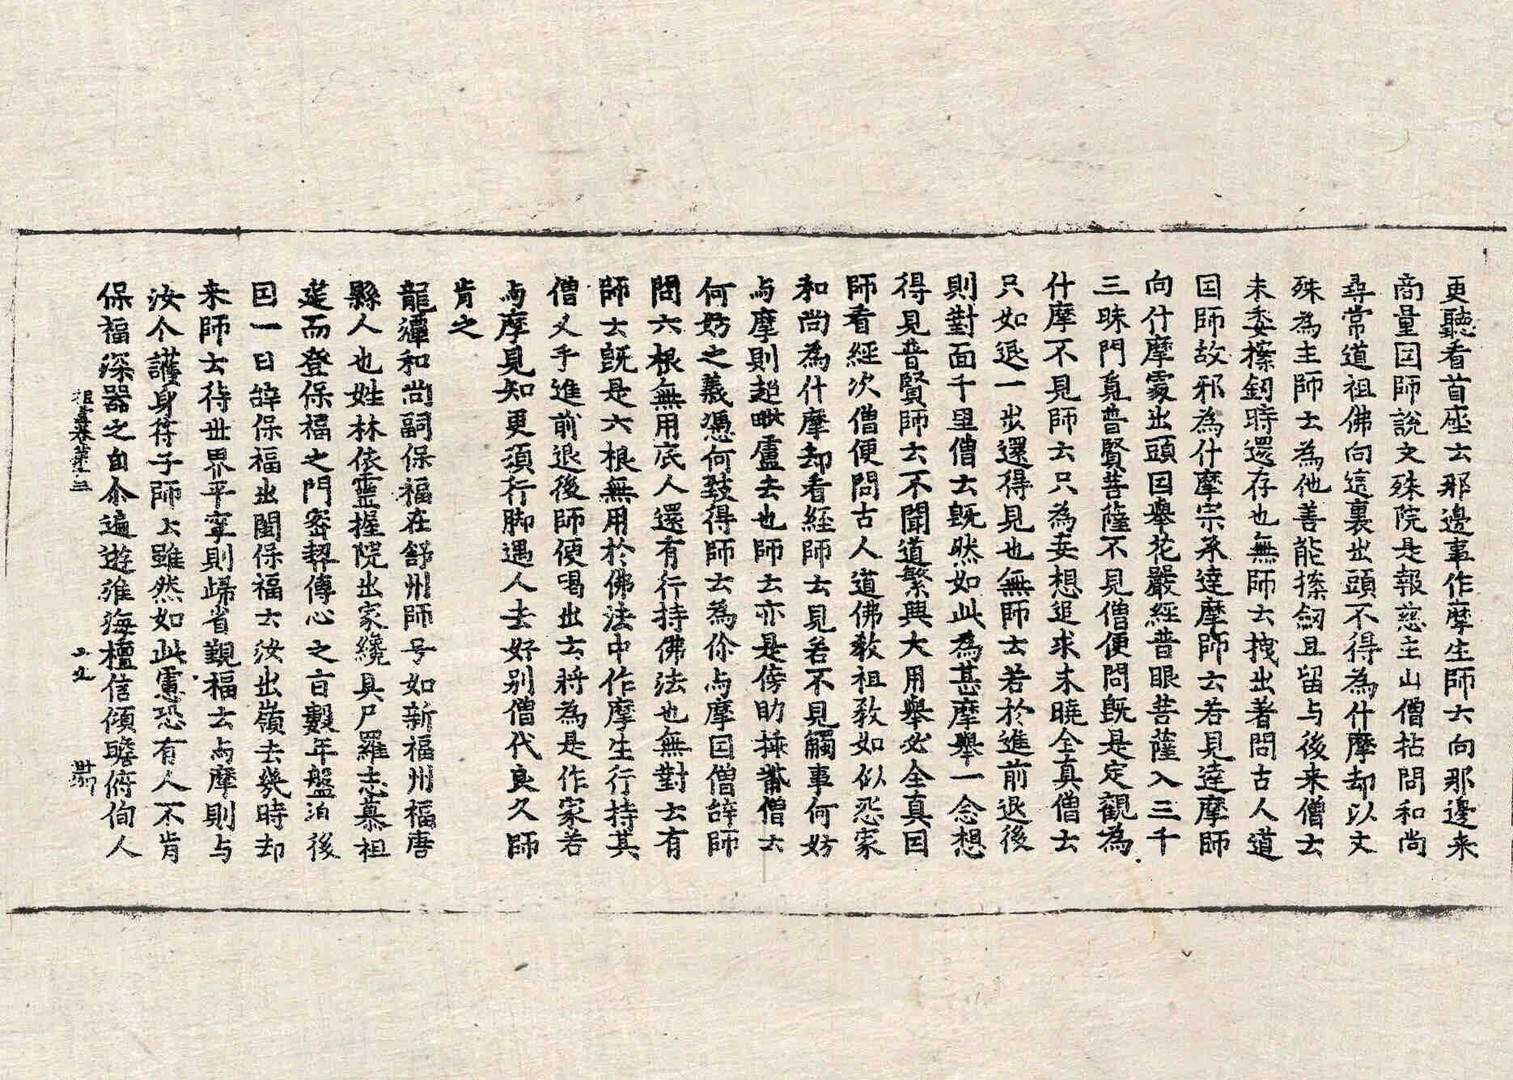 更聽看首座云那邊事作摩生師云向那邊来
商量因師說文殊院是報慈主山僧拈問和尚
尋常道祖佛向這裏出頭不得為什摩却以文
殊為主師云為他善能㨷釰且留与後来僧云
未委㨷釰時還存也無師云拽出著問古人道
因師故邪為什摩宗承達摩師云若見達摩師
向什摩䖏出頭因舉花嚴經普眼菩薩入三千
三昧門覓普賢菩薩不見僧便問既是定觀為
什摩不見師云只為妄想追求未曉全真僧云
只如退一步還得見也無師云若於進前退後
則對面千里僧云既然如此為甚摩舉一念想
得見普賢師云不聞道繁興大用舉必全真因
師看經次僧便問古人道佛教祖教如似怨家
和尚為什摩却看經師云見若不見觸事何妨
与摩則趙毗盧去也師云亦是傍助㨄䰂僧云
何妨之義憑何致得師云為你与摩因僧辞師
問六根無用底人還有行持佛法也無對云有
師云既是六根無用於佛法中作摩生行持其
僧叉手進前退後師便喝出云將為是作家若
与摩見知更須行脚遇人去好别僧代良久師
肯之
龍潭和尚嗣保福在舒州師号如新福州福唐
縣人也姓林依靈握院出家纔具尸羅志慕祖
筵而登保福之門密契傳心之旨數年盤泊後
因一日辞保福出閩保福云汝出嶺去幾時却
来師云待世界平寧則歸省覲福云与摩則与
汝个護身符子師云雖然如此慮恐有人不肯
保福深器之自尒遍遊淮海檀信傾瞻俯徇人
祖堂卷第十三